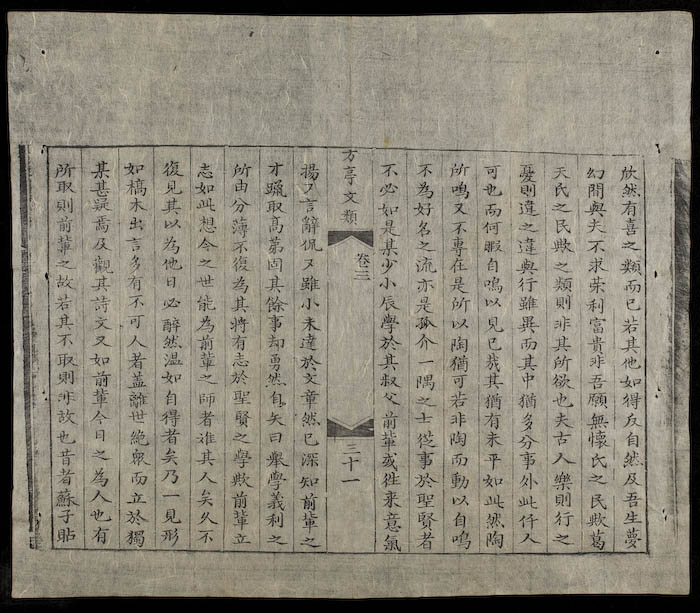 欣然有喜之類而已若其他如得反自然及吾生夢
幻間與夫不求荣利富貴非吾願無懷氏之民歟葛
天氏之民歟之類則非其所欲也夫古人樂則行之
憂則違之違與行雖異而其中猶多分事外此仟人
可也而何暇自鳴以見已哉其猶有未平如此然陶
所鳴又不專在是所以陶猶可若非陶而動以自鳴
不為好名之流亦是孤介一隅之士從事於聖賢者
不必如是某少小辰學於其叔父前輩或徃来意氣
方亭文類
卷三
三十一
揚〻言辭侃〻雖小未達於文章然已深知前輩之
才躐取高第固其餘事却勇然自矢曰舉學義利之
所由分薄不復為其將有志於聖賢之學歟前輩立
志如此想今之世能為前輩之師者誰其人矣久不
復見其以為他日必醉然温如自得者矣乃一見形
如槁木出言多有不可人者盖離世絶衆而立於獨
某甚疑焉及觀其詩文又如前輩今日之為人也有
所取則前輩之故若其不取則非故也昔者蘇子貼